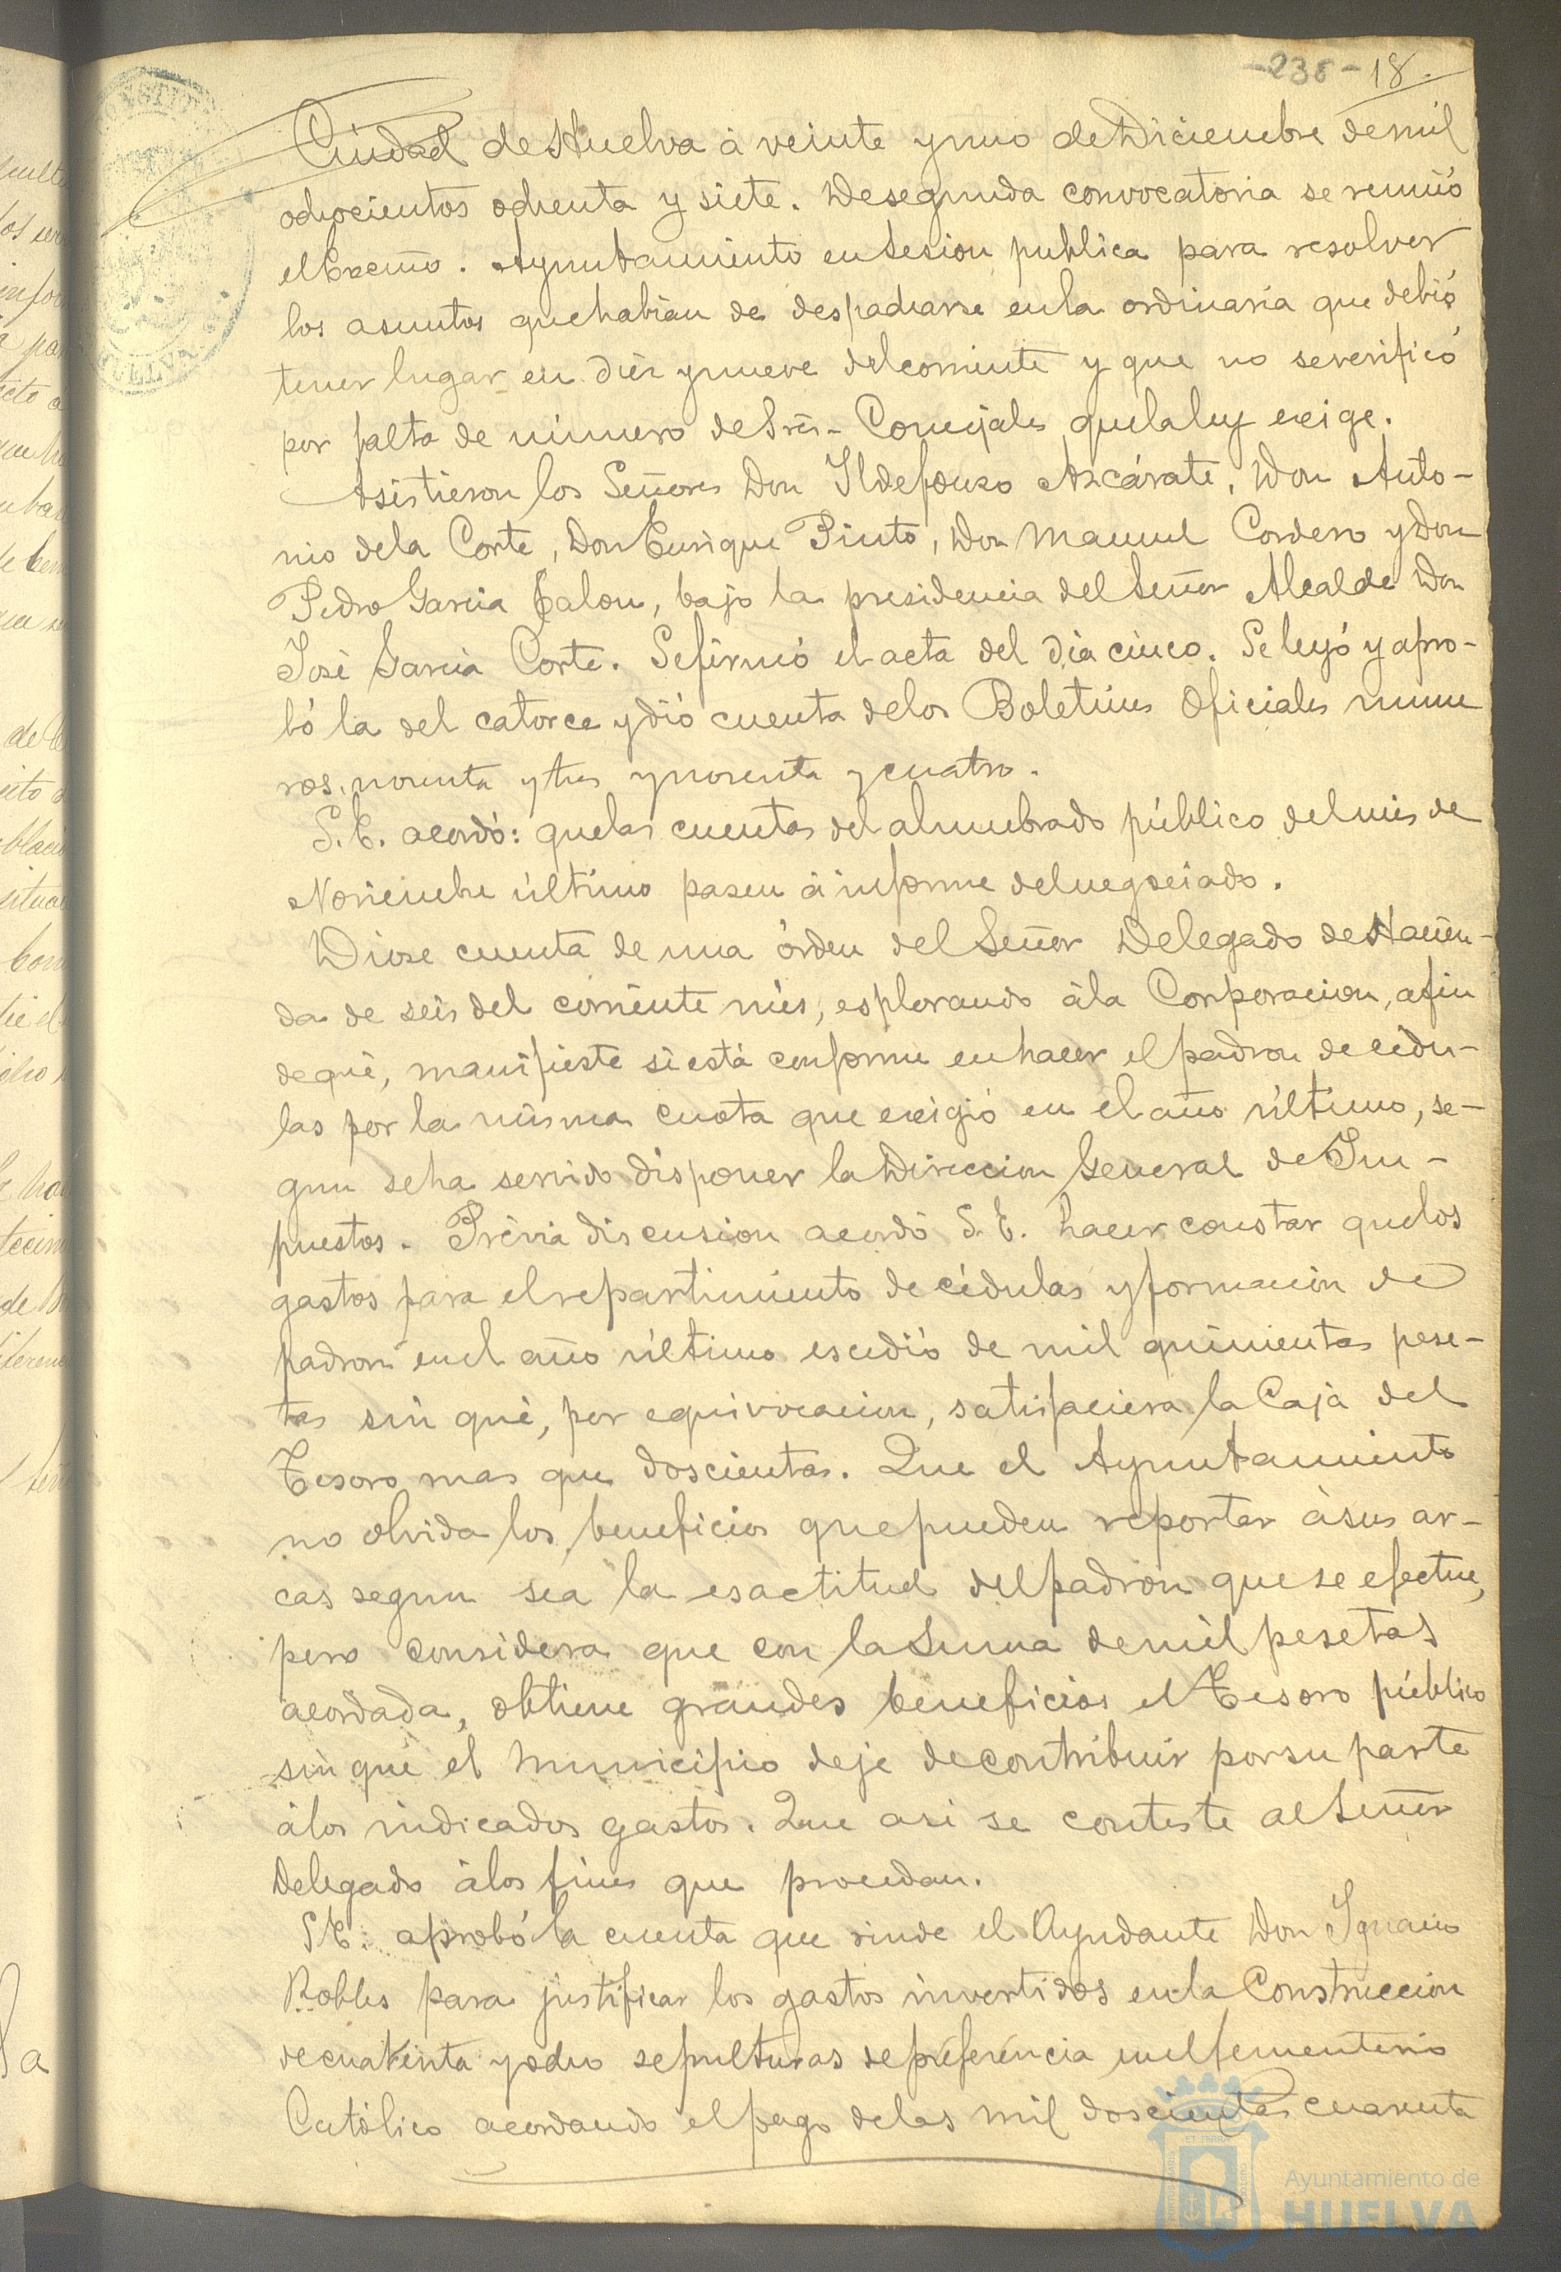 -238- 18.
Ciudad de Huelva á veinte y uno de Diciembre de mil
ochocientos ochenta y siete. De segunda convocatoria se reunió
el Excmo. Ayuntamiento en sesion publica para resolver
los asuntos que habian de despacharse en la ordinaria que debió
tener lugar en diez y nueve del corriente y que no se verificó
por falta de número de Sres. Concejales que la ley exige.
Asistieron los Señores Don Ildefonso Azcárate, Don Anto-
nio de la Corte, Don Enrique Pinto, Don Manuel Cordero y Don
Pedro Garcia Jalon, bajo la presidencia del Señor Alcalde Don
José Garcia Corte. Se firmó el acta del dia cinco. Se leyó y apro-
bó la del catorce y dió cuenta de los Boletines Oficiales nume
ros, noventa y tres y noventa y cuatro.
S. E. acordó: que las cuentas del alumbrado público del mes de
Noviembre último pasen á informe del negociado.
Diose cuenta de una órden del Señor Delegado de Hacien-
da de seis del corriente mes, esplorando á la Corporacion, a fin
de que, manifieste si está conforme en hacer el padron de cédu-
las por la misma cuota que exigió en el año último, se-
gun se ha servido disponer la Direccion General de Im-
puestos. Prévia discusion acordó S. E. hacer constar que los
gastos para el repartimiento de cédulas y formacion de
padron en el año último escedió de mil quinientas pese-
tas sin que, por equivocacion, satisfaciera la Caja del
Tesoro mas que doscientas. Que el Ayuntamiento
no olvida los beneficios que pueden reportar á sus ar-
cas segun sea la esactitud del padron que se efectue,
pero considera que con la suma de mil pesetas
acordada, obtiene grandes beneficios el Tesoro público
sin que el Municipio deje de contribuir por su parte
á los indicados gastos. Que asi se conteste al Señor
Delegado á los fines que procedan.
S. E. aprobó la cuenta que rinde el Ayudante Don Ignacio
Robles para justificar los gastos invertidos en la Construccion
de cuarenta y ocho sepulturas de preferencia en el Cementerio
Católico acordando el pago de las mil doscientas cuarenta
Ayuntamiento de
HUELVA